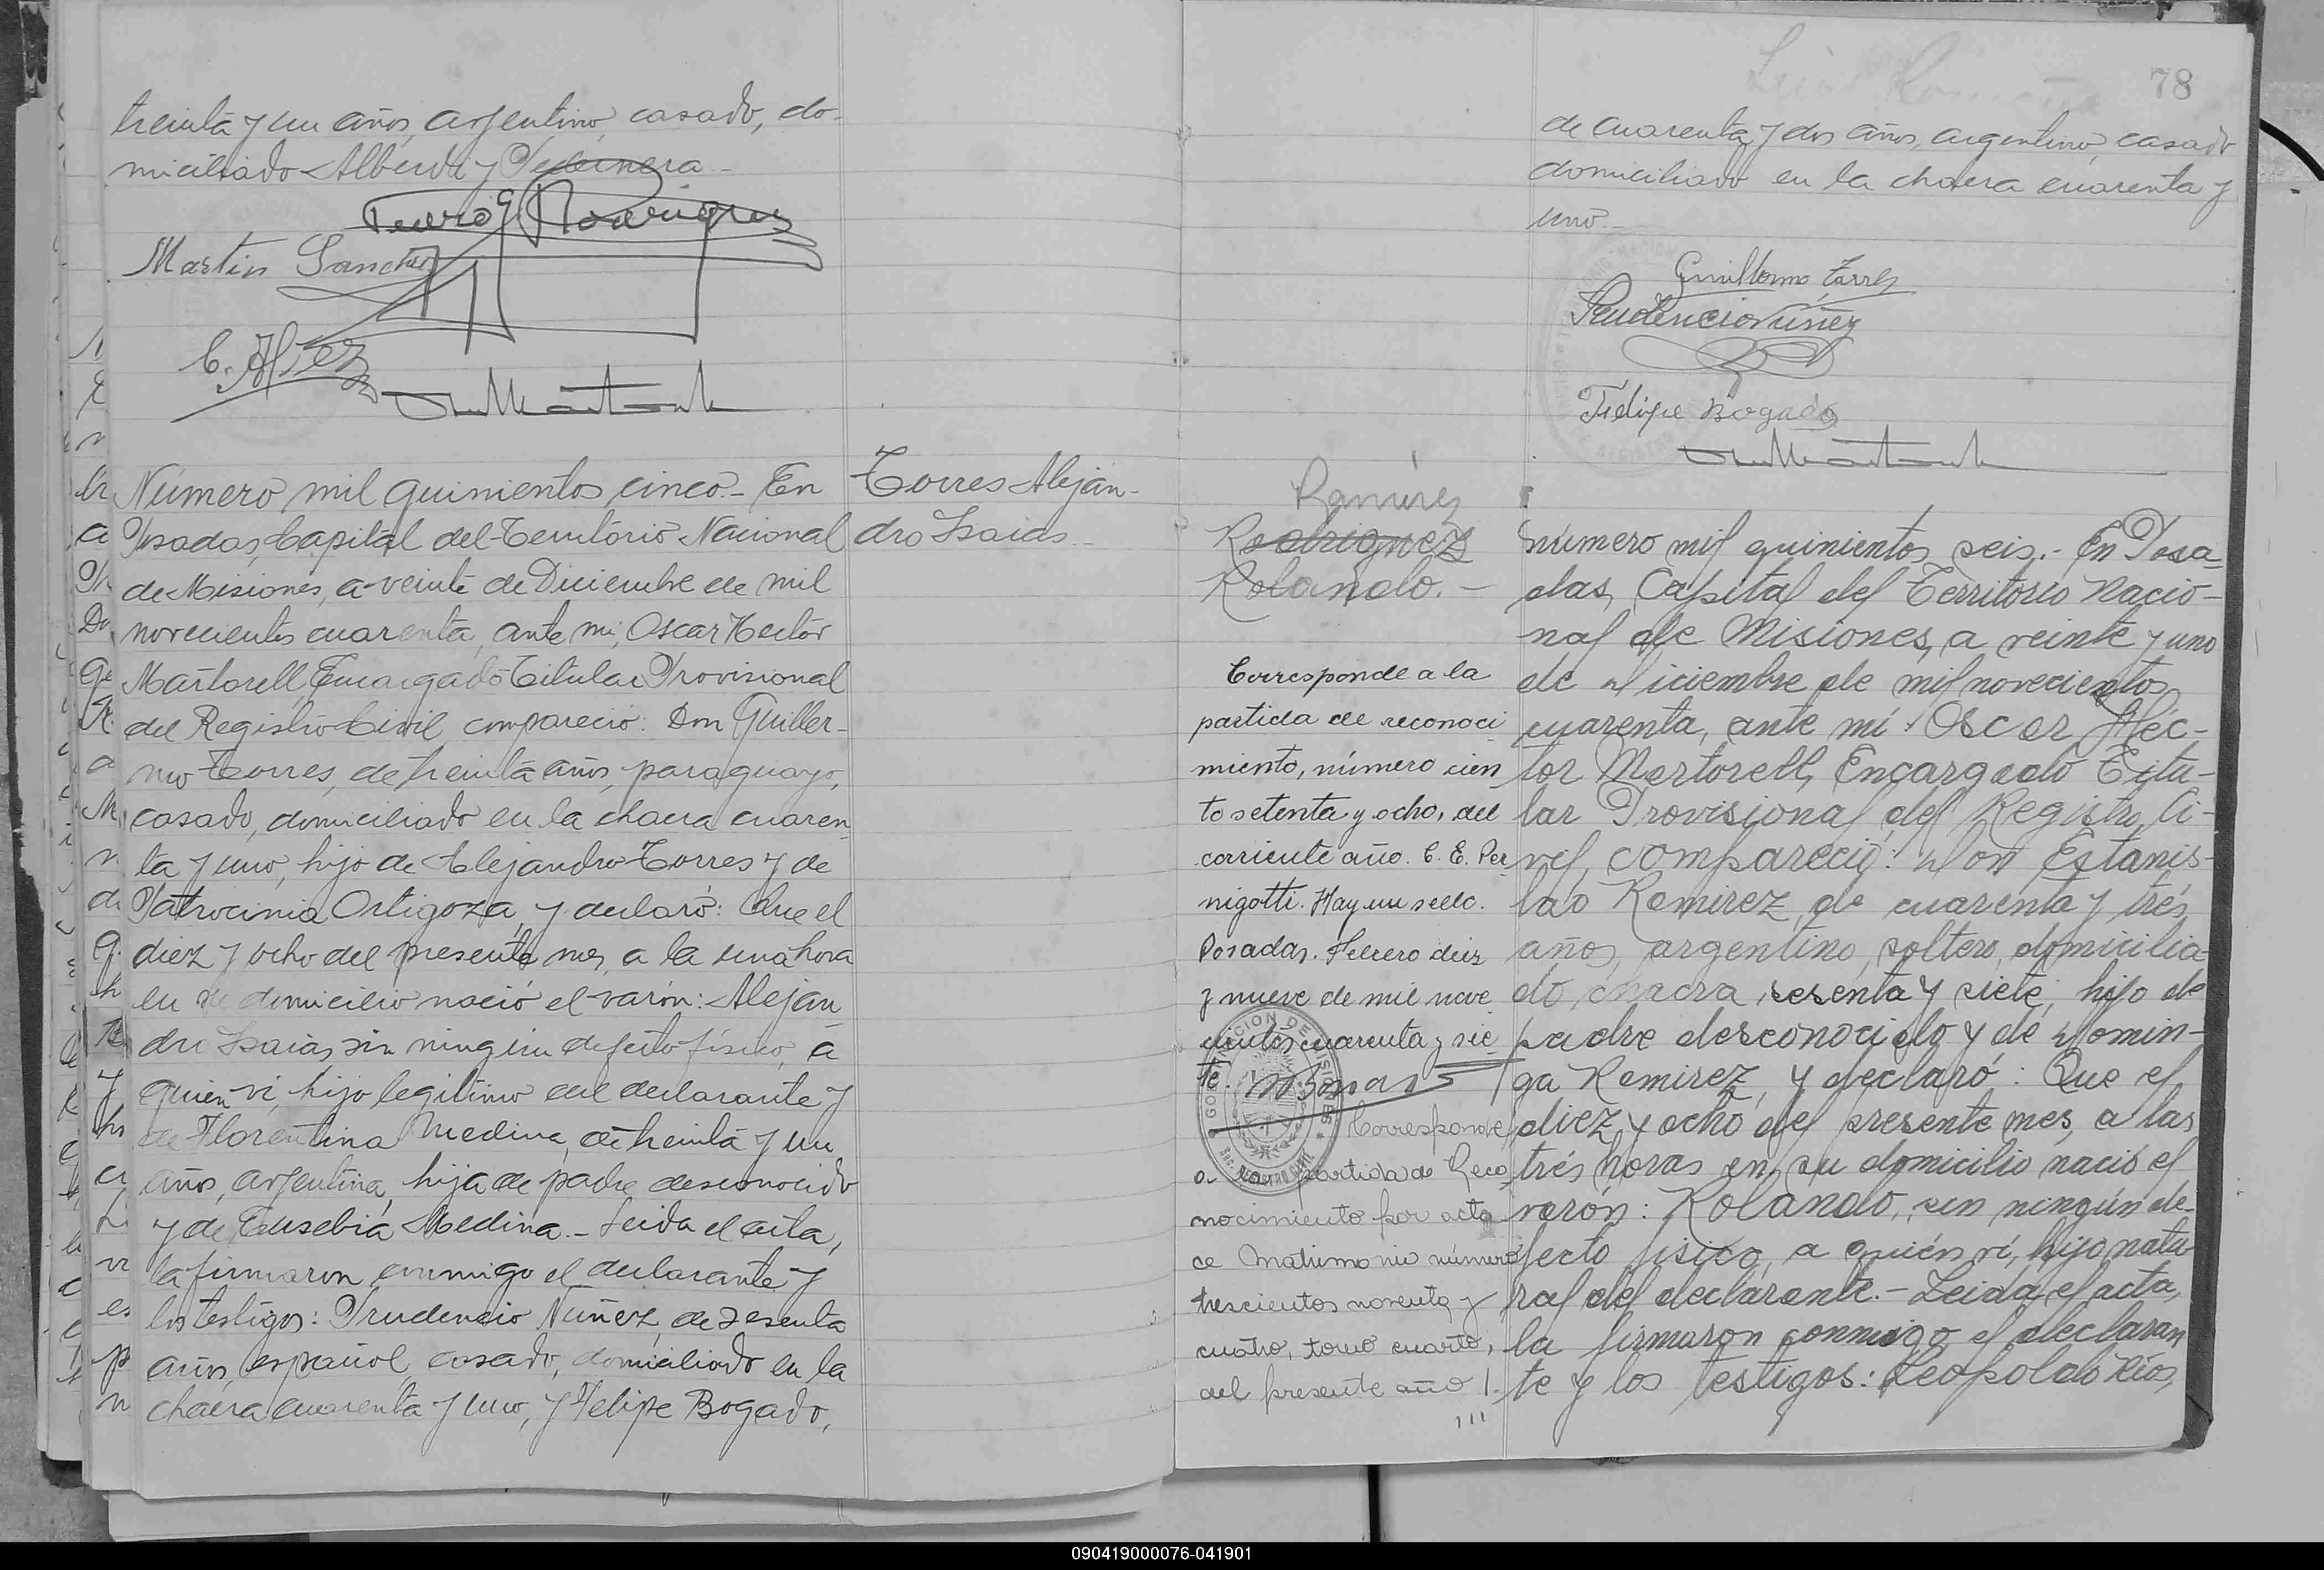 treinta y un años, argentino, casado, do-
miciliado Alberdi y Pedernera.-
Pedro G. Rodriguez
Martin Sanchez
Número mil quinientos cinco.- En
Posadas, Capital del Territorio Nacional
de Misiones, a veinte de Diciembre de mil
novecientos cuarenta, ante mi, Oscar Hector
Martorell, Encargado Titular Provisional
del Registro Civil, compareció: Don Guiller-
mo Torres, de treinta años, paraguayo,
casado, domiciliado en la chacra cuaren
ta y uno, hijo de Alejandro Torres y de
Patrocinia Ortigoza, y declaró: Que el
diez y ocho del presente mes, a la una hora
en su domicilio nació el varón: Alejan
dro Isaias, sin ningún defecto físico, a
quien vi, hijo legítimo del declarante y
de Florentina Medina, de treinta y un
años, argentina, hija de padre desconocido
y de Eusebia Medina.- Leida el acta,
la firmaron conmigo el declarante y
los testigos: Prudencio Nuñez, de sesenta
años, español, casado, domiciliado en la
chacra cuarenta y uno, y Felipe Bogado,
Torres Alejan-
dro Isaias.-
78
de cuarenta y dos años, argentino, casado
domiciliado en la chacra cuarenta y
uno.-
Guillermo Torres
Prudencio Nuñez
Felipe Bogado
Ramirez
Rodriguez
Rolando.-
Corresponde a la
partida de reconoci
miento, número cien
to setenta y ocho, del
corriente año. C. E. Per
nigotti. Hay un sello.
Posadas. Febrero diez
y nueve de mil nove
cientos cuarenta y sie
te.
Corresponde
a la partida de Reco
nocimiento por acta
de Matrimonio número
trescientos noventa y
cuatro, tomo cuarto,
del presente año
número mil quinientos seis.- En Posa
das, Capital del Territorio Nacio-
nal de Misiones, a veinte y uno
de Diciembre de mil novecientos
cuarenta, ante mí: Oscar Héc-
tor Martorell, Encargado Titu-
lar Provisional del Registro Ci-
vil, compareció: Don Estanis-
lao Ramirez, de cuarenta y trés
años, argentino, soltero, domicilia-
do chacra sesenta y siete, hijo de
padre desconocido y de Domin-
ga Ramirez, y declaró: Que el
diez y ocho del presente mes, a las
trés horas en su domicilio nació el
varón: Rolando, sin ningún de-
fecto físico, a quién ví, hijo natu
ral del declarante.- Leida el acta,
la firmaron conmigo el declaran
te y los testigos: Leopoldo Rios,
090419000076-041901